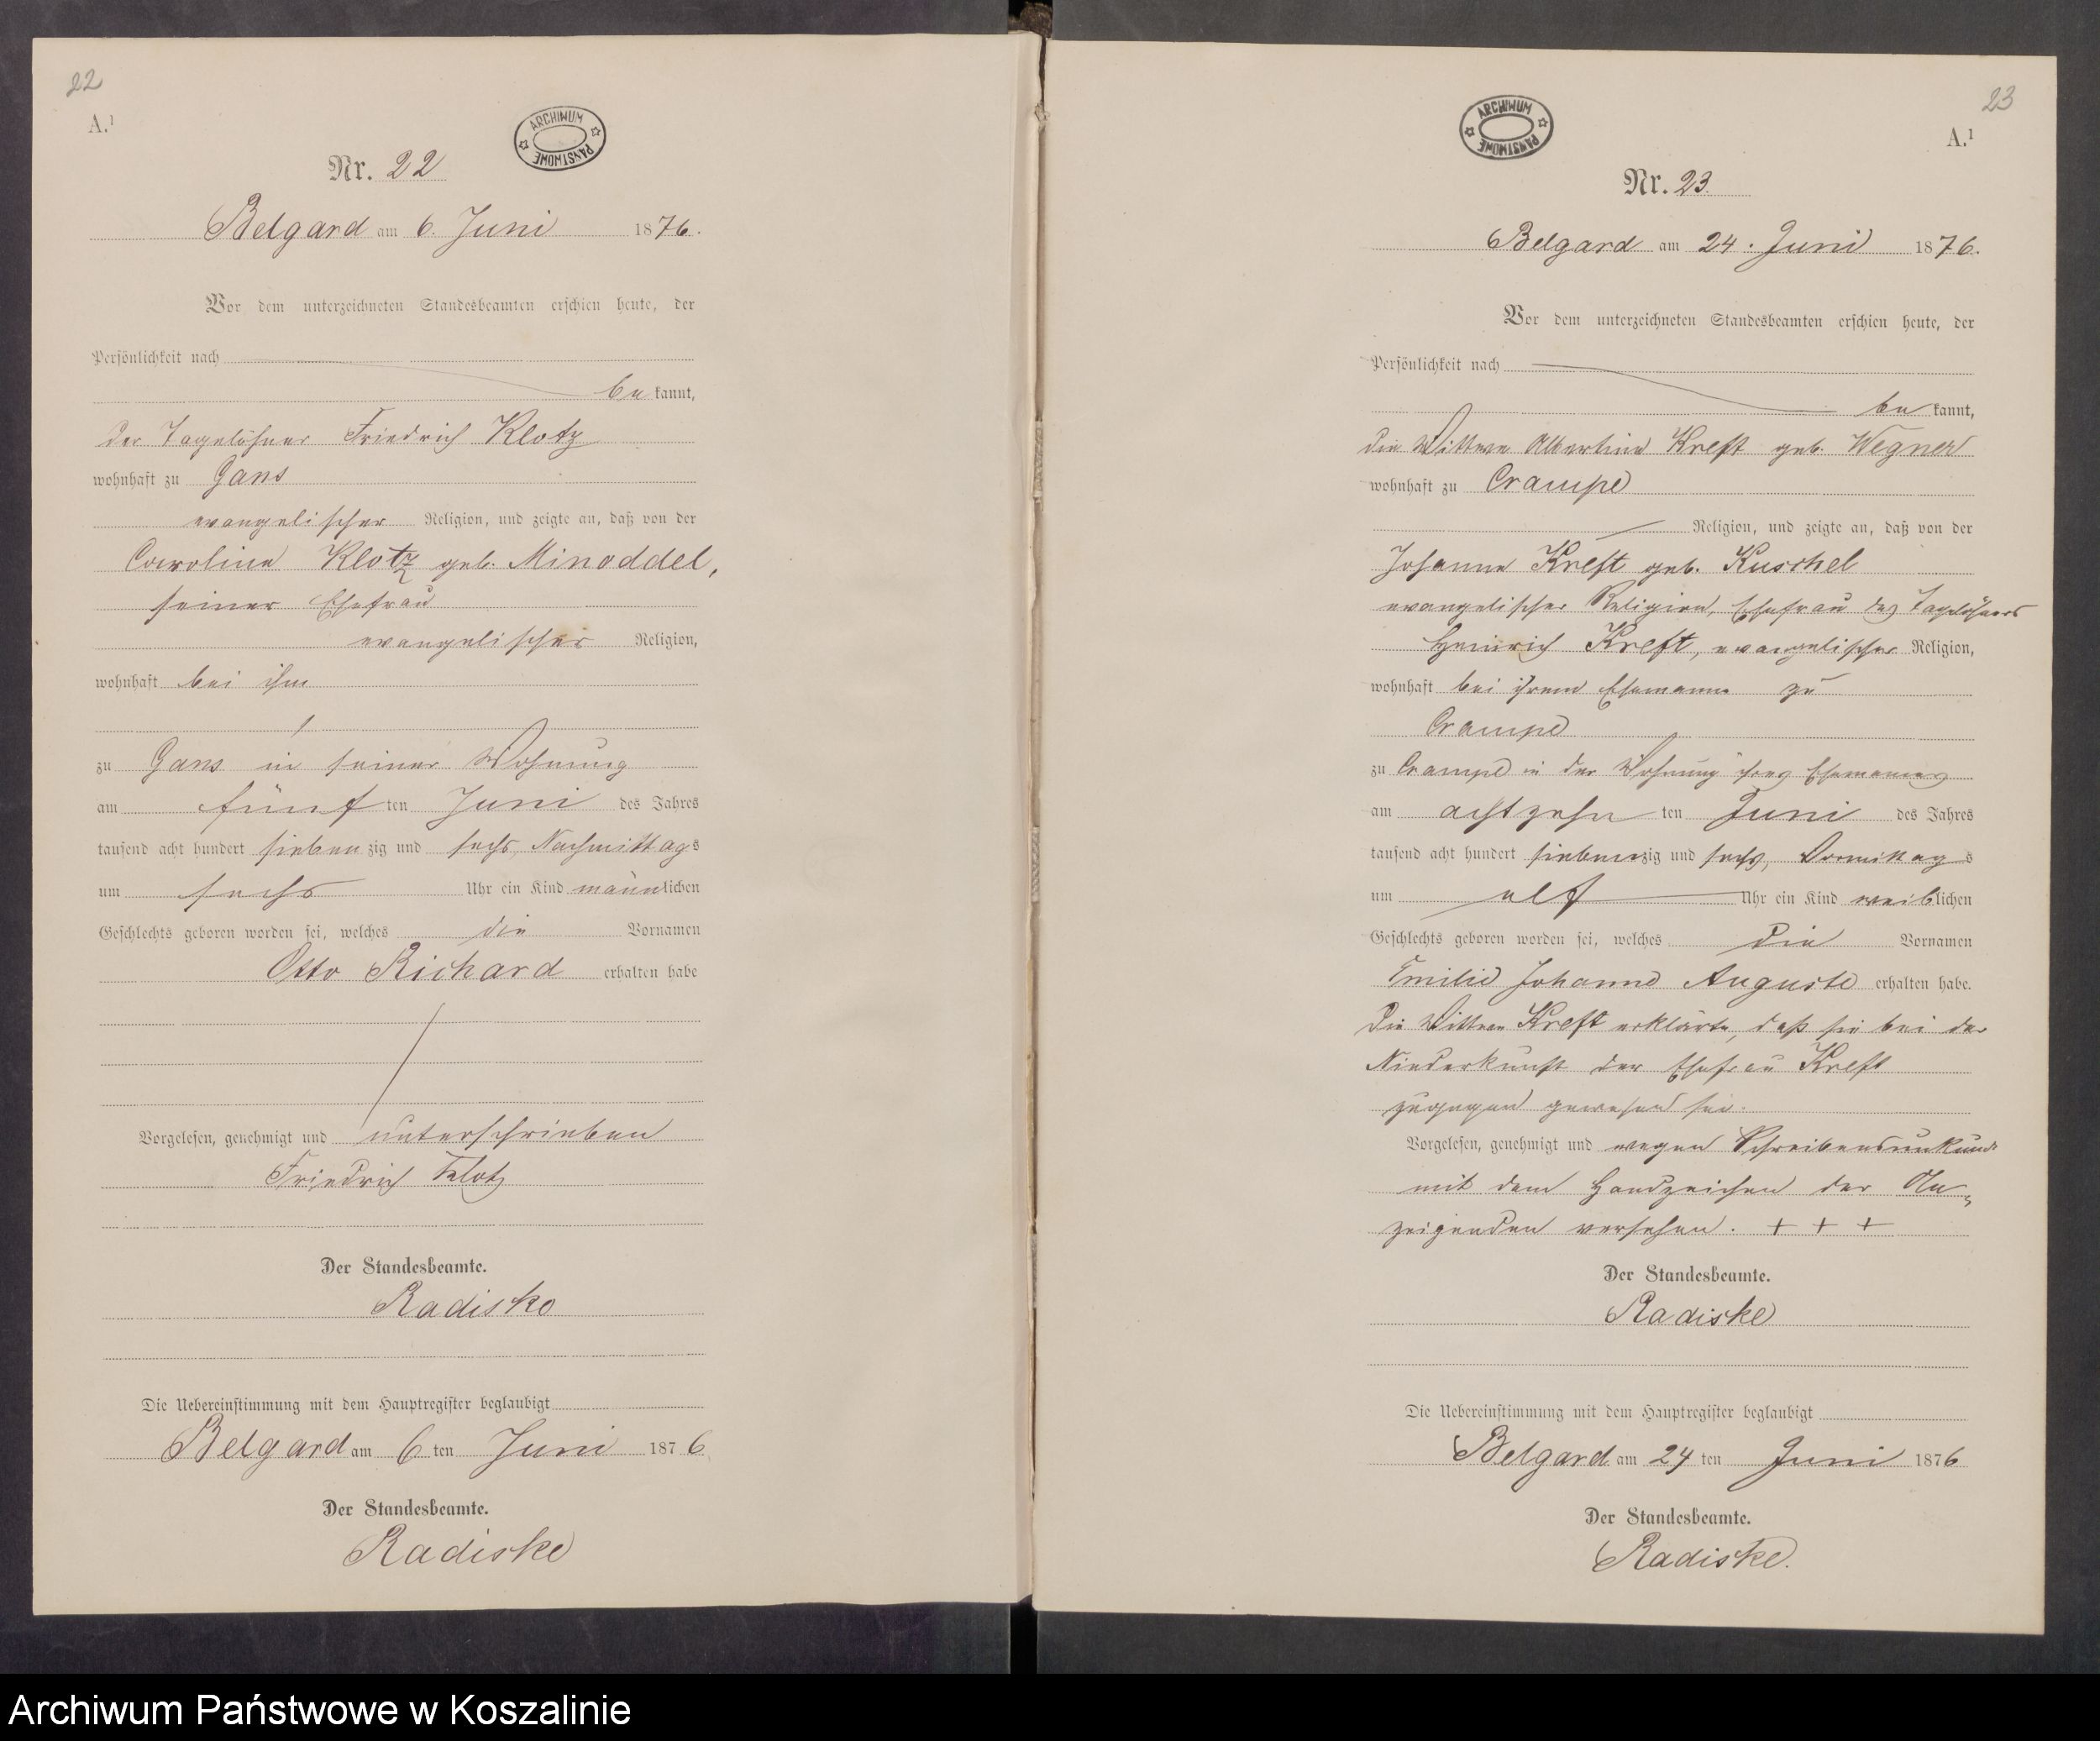 22
A.¹
ARCHIWUM PAŃSTWOWE
Nr. 22
Belgard am 6. Juni 1876.
Vor dem unterzeichneten Standesbeamten erschien heute, der
Persönlichkeit nach
bekannt,
der Tagelöhner Friedrich Klotz
wohnhaft zu Gans
evangelischer Religion, und zeigte an, daß von der
Caroline Klotz geb. Minoddel,
seiner Ehefrau
evangelischer Religion,
wohnhaft bei ihm
zu Gans in seiner Wohnung
am fünften Juni des Jahres
tausend acht hundert siebenzig und sechs, Nachmittags
um sechs Uhr ein Kind männlichen
Geschlechts geboren worden sei, welches die Vornamen
Otto Richard erhalten habe
Vorgelesen, genehmigt und unterschrieben
Friedrich Klotz
Der Standesbeamte.
Radiske
Die Uebereinstimmung mit dem Hauptregister beglaubigt
Belgard am 6ten Juni 1876
Der Standesbeamte.
Radiske
23
A.¹
ARCHIWUM PAŃSTWOWE
Nr. 23.
Belgard am 24. Juni 1876.
Vor dem unterzeichneten Standesbeamten erschien heute, der
Persönlichkeit nach
bekannt,
die Wittwe Albertine Kreft geb. Wegner
wohnhaft zu Crampe
Religion, und zeigte an, daß von der
Johanne Kreft geb. Kuschel
evangelischer Religion, Ehefrau des Tagelöhners
Heinrich Kreft, evangelischer Religion,
wohnhaft bei ihrem Ehemanne zu
Crampe
zu Crampe in der Wohnung ihres Ehemannes
am achtzehnten Juni des Jahres
tausend acht hundert siebenzig und sechs, Vormittags
um elf Uhr ein Kind weiblichen
Geschlechts geboren worden sei, welches die Vornamen
Emilie Johanne Auguste erhalten habe.
Die Wittwe Kreft erklärte, daß sie bei der
Niederkunft der Ehefrau Kreft
zugegen gewesen sei.
Vorgelesen, genehmigt und wegen Schreibensunkunde
mit dem Handzeichen der An-
zeigenden versehen. + + +
Der Standesbeamte.
Radiske
Die Uebereinstimmung mit dem Hauptregister beglaubigt
Belgard am 24ten Juni 1876
Der Standesbeamte.
Radiske.
Archiwum Państwowe w Koszalinie